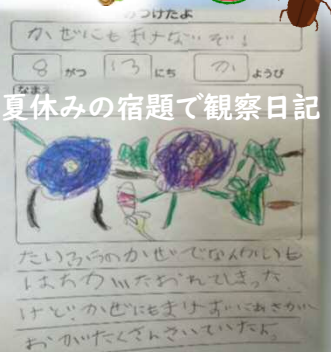 みつけたよ
かぜにもまけないぞ!
8 がつ 13 にち か ようび
なまえ
夏休みの宿題で観察日記
たいふうのかぜでなんかいも
はちがたおれてしまった
けど、かぜにもまけずにあさがお
がたくさんさいていたよ。